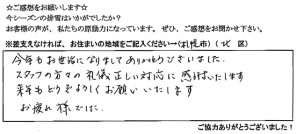 ☆ご感想をお願いします☆
今シーズンの排雪はいかがでしたか?
お客様の声が、私たちの原動力になっています。ぜひ、ご感想をお聞かせ下さい。
※差支えなければ、お住まいの地域をご記入ください→(札幌市)( 北 区)
今年もお世話になりましてありがとうございました。
スタッフの方々の礼儀正しい対応に感謝いたします
来年もどうぞよろしくお願いいたします
お疲れ様でした。
ご協力ありがとうございました!